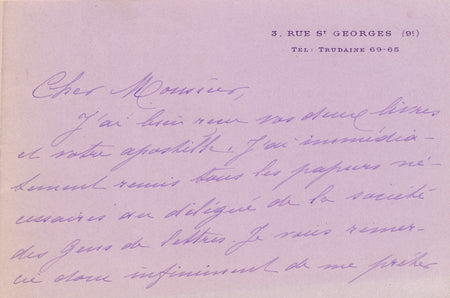 3, RUE St GEORGES (9e)
TEL: TRUDAINE 69-65
Cher Monsieur,
J'ai bien reçu vos deux livres
et votre apostille. J'ai immédia-
tement remis tous les papiers né-
cessaires au délégué de la société
des Gens de lettres. Je vous remer-
cie donc infiniment de me prêter